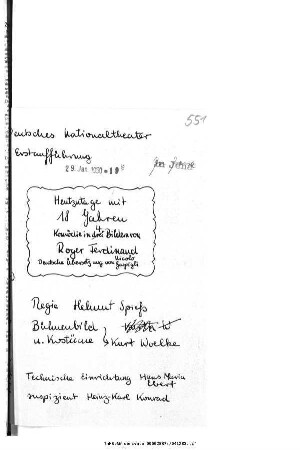 551
Deutsches Nationaltheater
Erstaufführung
29. Jan. 19
Heutzutage mit
18 Jahren
Komödie in drei Bildern von
Roger Ferdinand
Deutsche Übersetzung von
Regie Helmut Spieß
Bühnenbild
u. Kostüme Kurt Woelke
Technische Einrichtung Hans Maria
Ebert
Inspizient Heinz-Karl Konrad